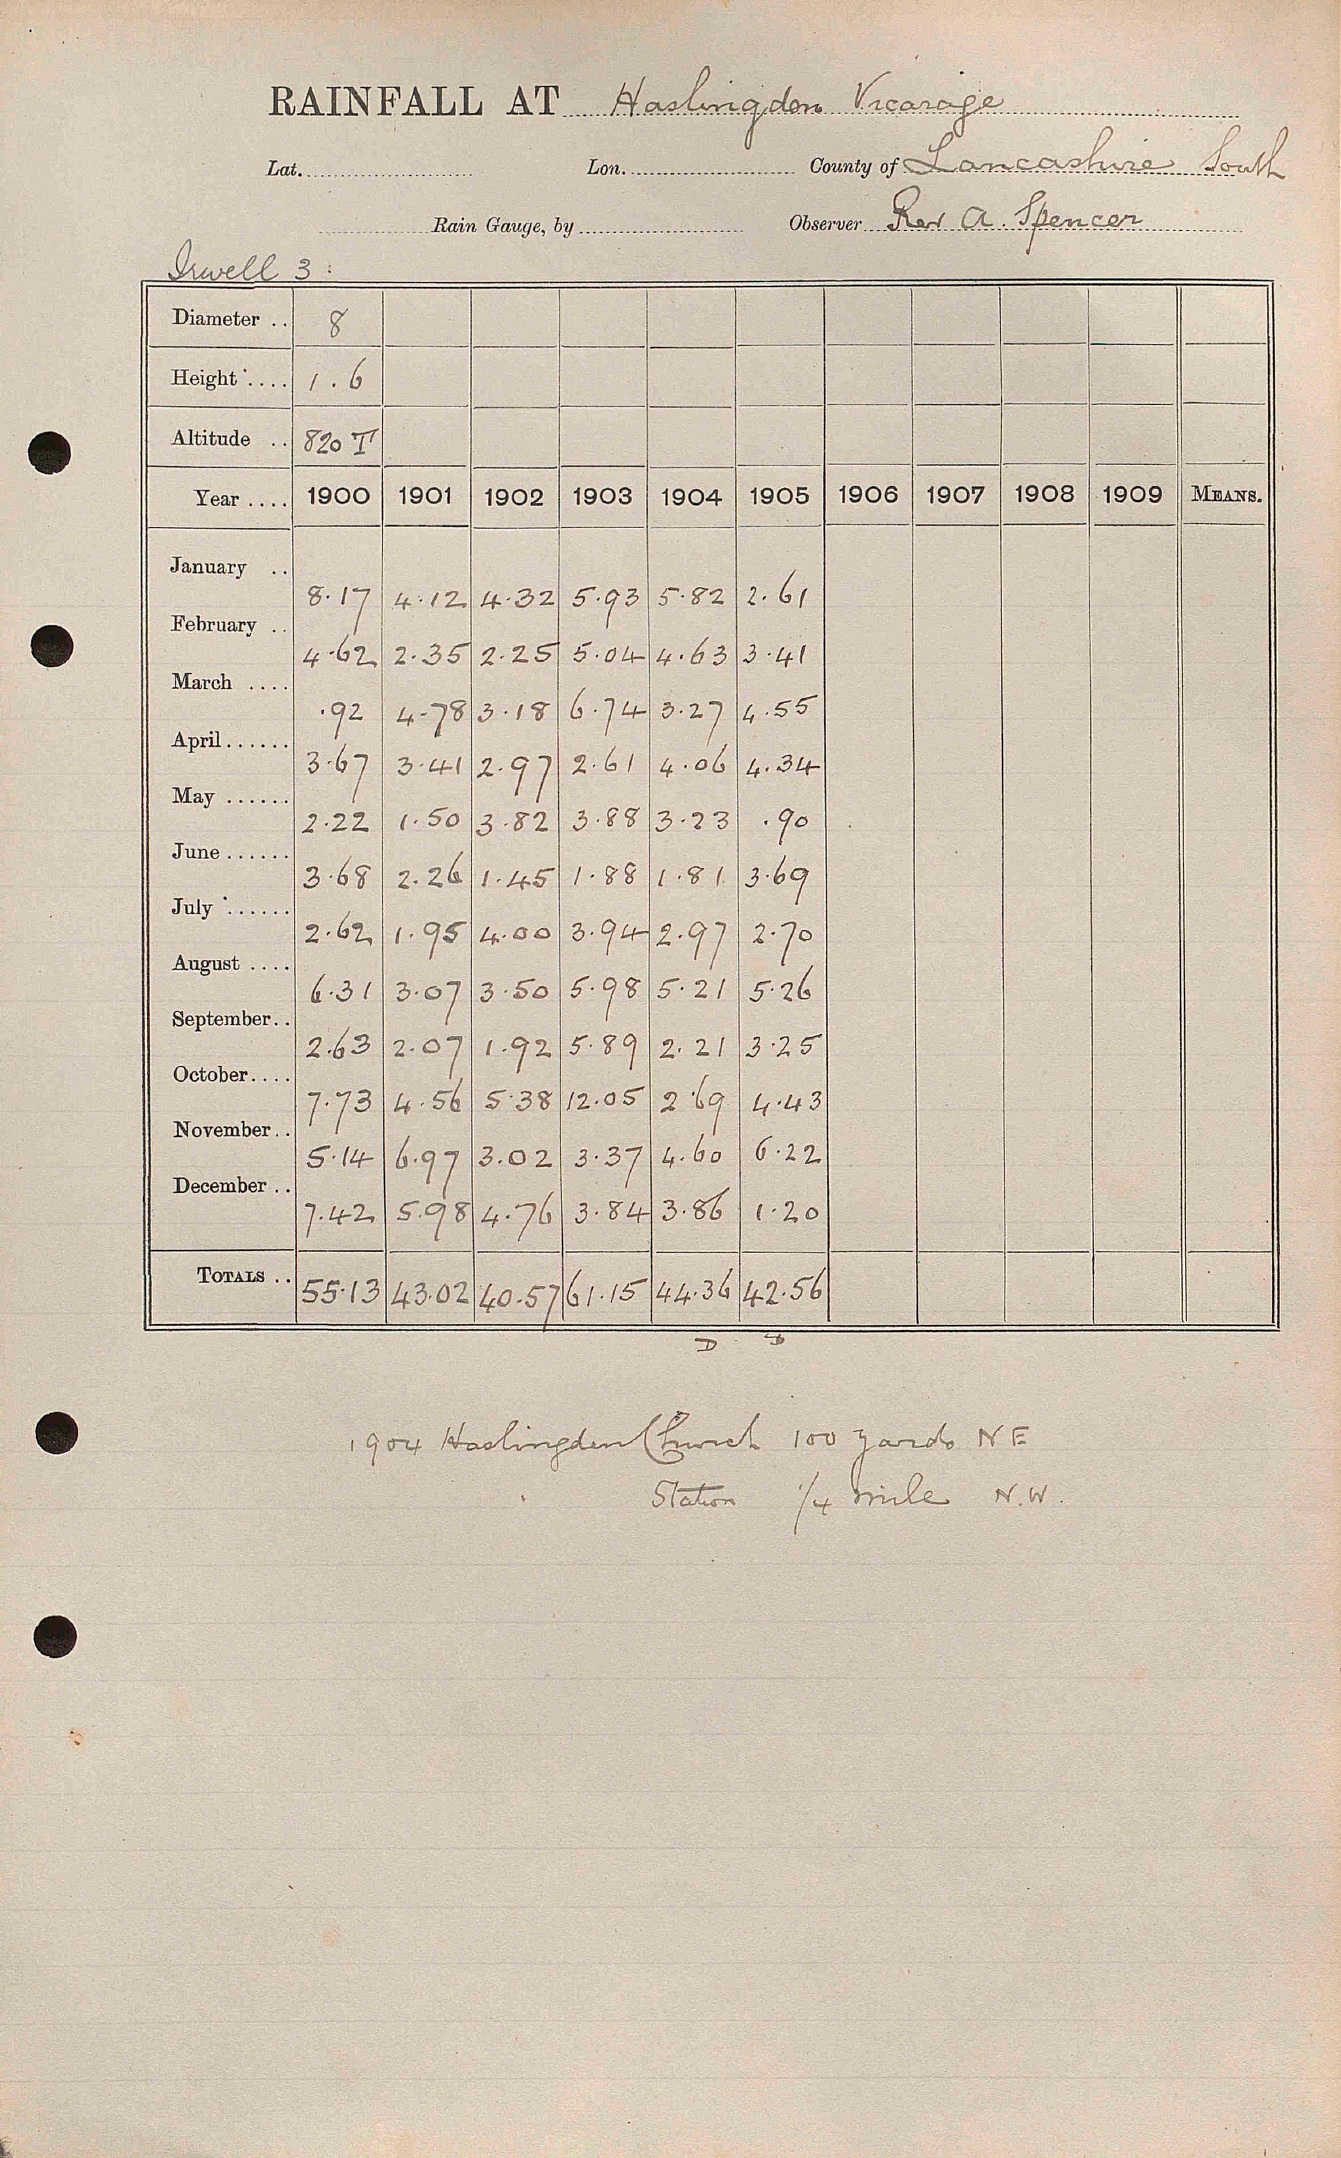 RAINFALL AT Haslingden Vicarage
Lat. Lon. County of Lancashire South
Rain Gauge, by Observer Rev A. Spencer
Irwell 3:
Diameter .. 8
Height .... 1.6
Altitude .. 820 T
Year .... 1900 1901 1902 1903 1904 1905 1906 1907 1908 1909 MEANS.
January .. 8.17 4.12 4.32 5.93 5.82 2.61
February .. 4.62 2.35 2.25 5.04 4.63 3.41
March .... .92 4.78 3.18 6.74 3.27 4.55
April...... 3.67 3.41 2.97 2.61 4.06 4.34
May ...... 2.22 1.50 3.82 3.88 3.23 .90
June ...... 3.68 2.26 1.45 1.88 1.81 3.69
July ...... 2.62 1.95 4.00 3.94 2.97 2.70
August .... 6.31 3.07 3.50 5.98 5.21 5.26
September.. 2.63 2.07 1.92 5.89 2.21 3.25
October.... 7.73 4.56 5.38 12.05 2.69 4.43
November.. 5.14 6.97 3.02 3.37 4.60 6.22
December .. 7.42 5.98 4.76 3.84 3.86 1.20
TOTALS .. 55.13 43.02 40.57 61.15 44.36 42.56
D D
1904 Haslingden Church 100 yards NE
Station 1/4 mile N.W.